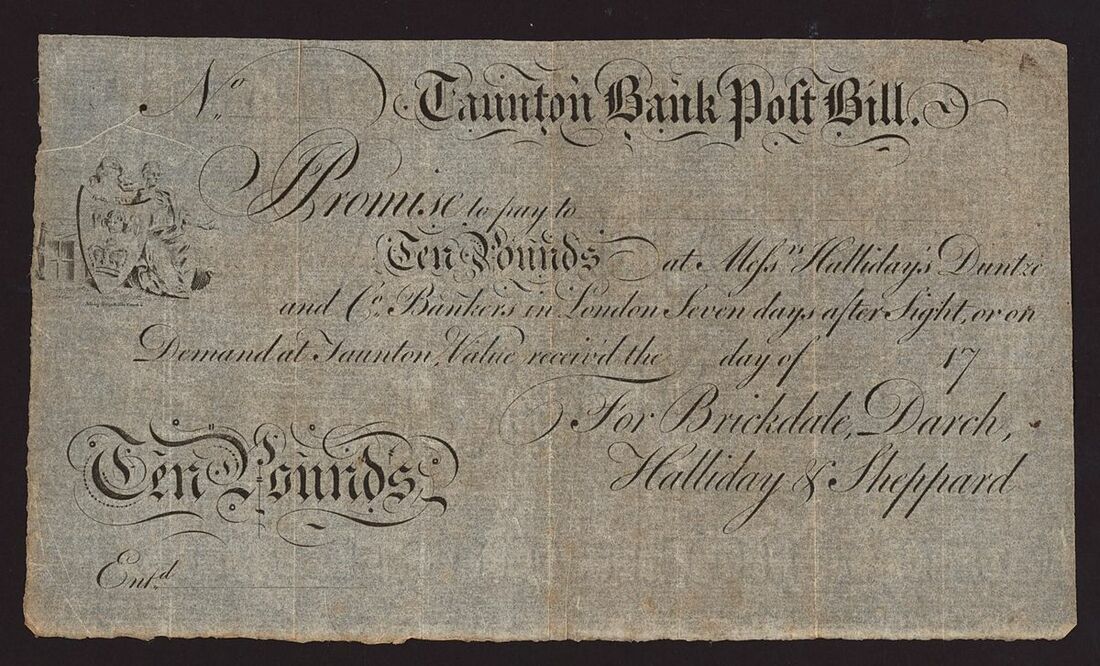 No
Taunton Bank Post Bill.
I Promise to pay to
Ten Pounds at Messrs Halliday's Duntze
and Co. Bankers in London Seven days after Sight, or on
Demand at Taunton, Value receiv'd the day of 17
For Brickdale, Darch,
Halliday & Sheppard
Ten Pounds
Entd